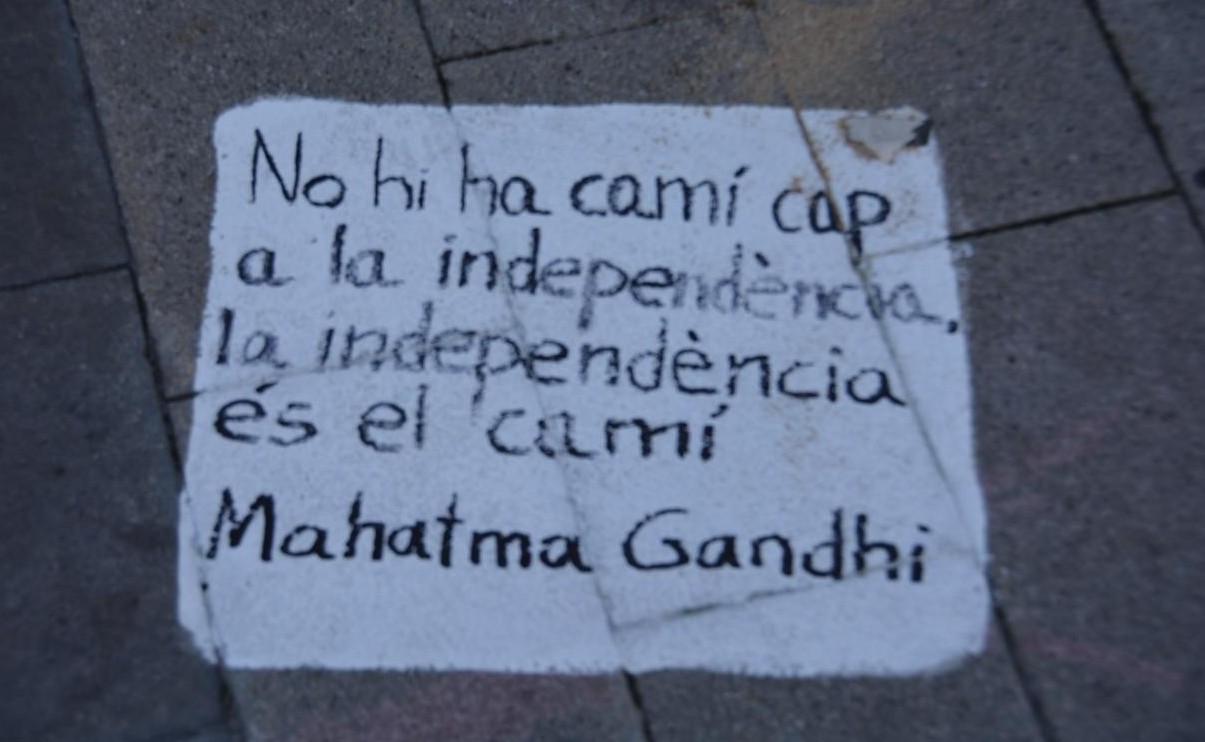 No hi ha camí cap
a la independència,
la independència
és el camí
Mahatma Gandhi